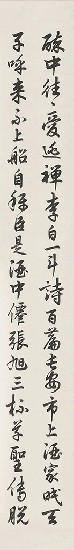 醉中往々愛逃禪李白一斗詩百篇長安市上酒家眠天
子呼来不上船自稱臣是酒中僊張旭三杯草聖傳脫